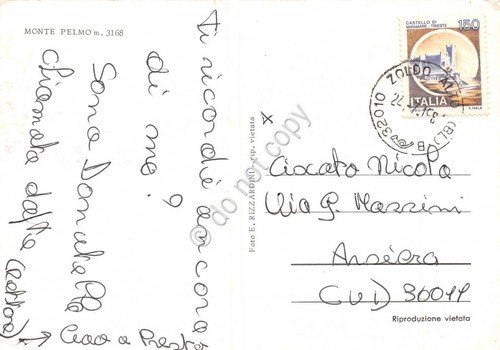 MONTE PELMO m. 3168
Tu ricordi ancora
di me?
Sono Donatella
chiamata dalla
Ciao a Presto
Foto E. RIZZARDINI - rip. vietata
CASTELLO DI
MIRAMARE - TRIESTE
150
ITALIA
32010 ZOLDO ALTO (BL) B
Cioccato Nicola
Via G. Mazzini
Arsiero
(VI) 36011
Riproduzione vietata
do not copy